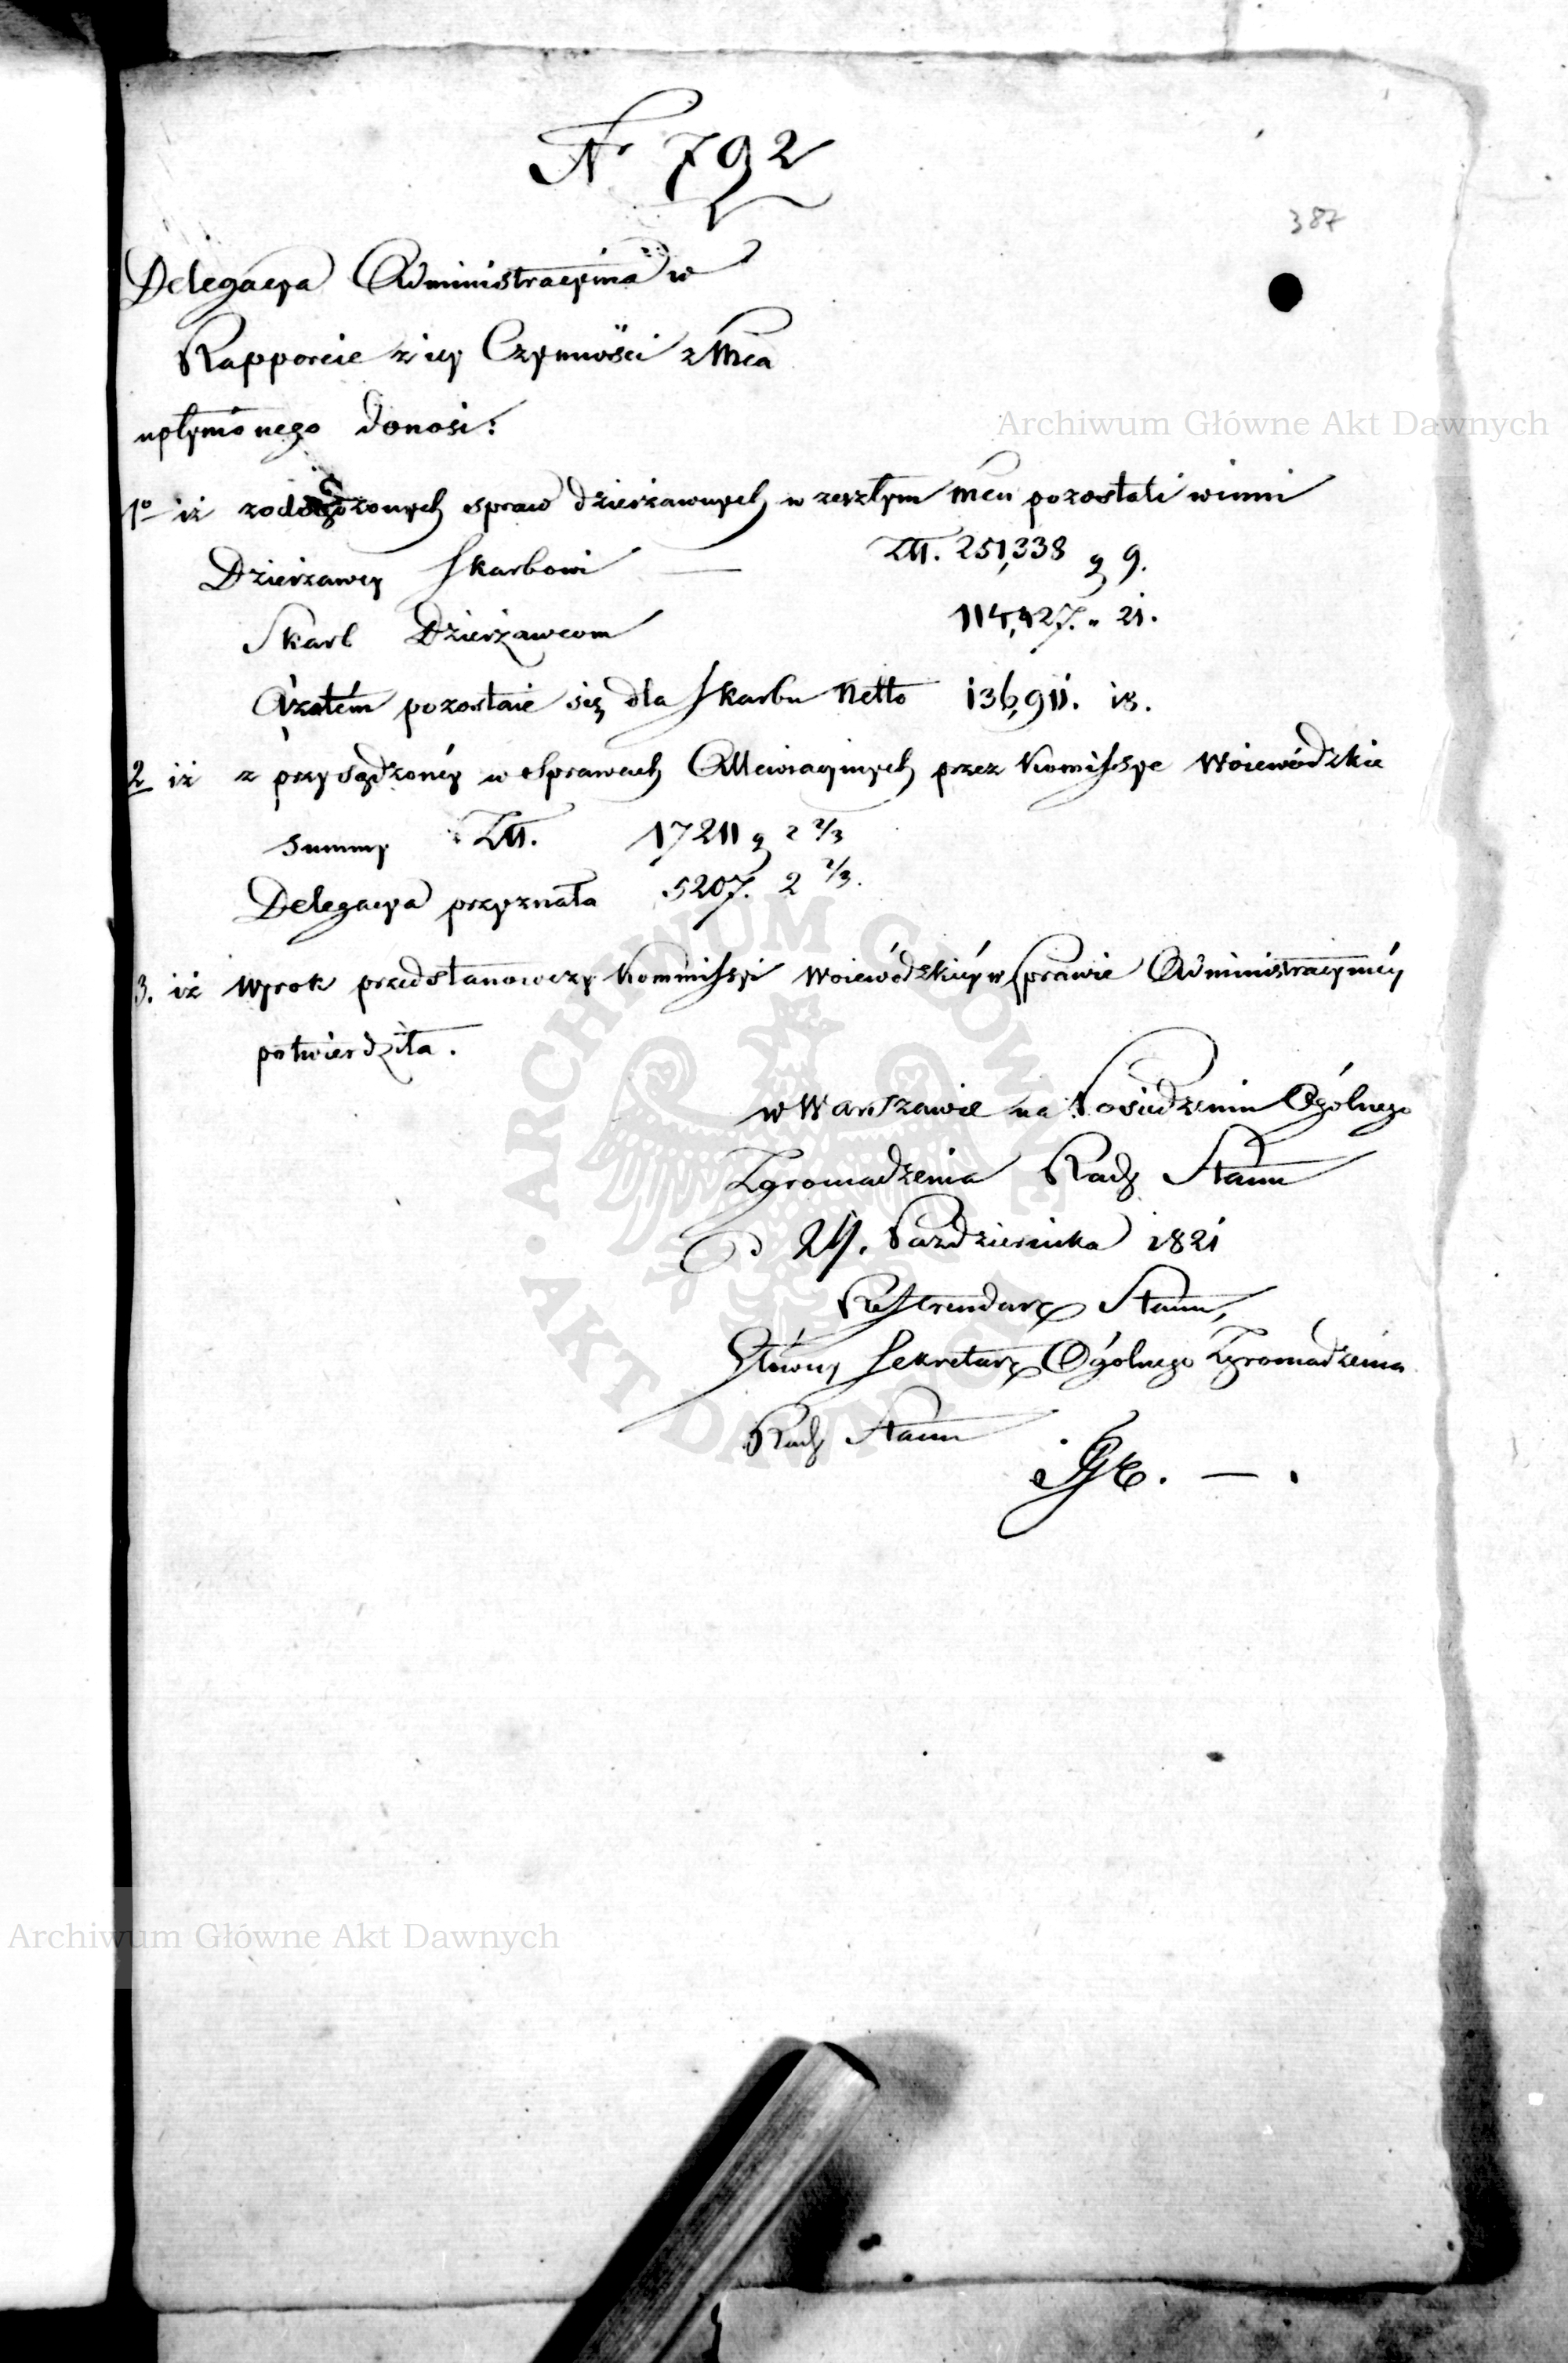 N 792
387
Delegacya Administracyina w
Rapporcie z iey Czynności z Mca
upłynionego donosi:
1o iż z spraw dzierżawnych w zeszłym Mcu pozostali winni
Dzierżawcy Skarbowi — Złł. 251,338 g 9.
Skarb Dzierżawcom 114,427. " 21.
A zatém pozostaie się dla Skarbu Netto 136,911. 18.
2 iż z przysądzonéy w Sprawach Allewiacyinych przez Kommissye Woiewódzkie
Summy Złł. 17211 g 2 2/3
Delegacya przyznała 5207. 2 2/3.
3. iż Wyrok przedstanowczy Kommissyi Woiewódzkiéy w Sprawie Administracyinéy
potwierdziła.
w Warszawie na Posiedzeniu Ogólnego
Zgromadzenia Rady Stanu
d 24. Października 1821
Referendarz Stanu,
Główny Sekretarz Ogólnego Zgromadzenia
Rady Stanu
Archiwum Główne Akt Dawnych
Archiwum Główne Akt Dawnych
ARCHIWUM GŁÓWNE
AKT DAWNYCH